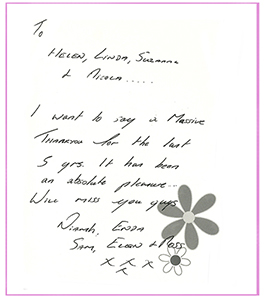 To
HELEN, LINDA, SUZANNA
& NICOLA.....
I want to say a Massive
THANKYOU for the last
5 yrs. It has been
an absolute pleasure...
WILL miss you guys
NIAMH, ENDA
SAM, EUAN & ROSS
x x x
x